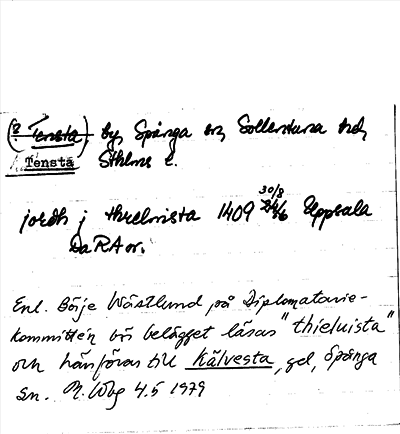 (? Tensta) by, Spånga sn, Sollentuna hd,
Tensta Sthlms l.
jordh j threlvista 1409 30/8 Uppsala
DaRA or.
Enl. Börje Westlund på Diplomatarie-
kommittén bör belägget läsas "thieluista"
och hänföras till Kälvesta, gd, Spånga
sn. M. Wbg 4.5 1979